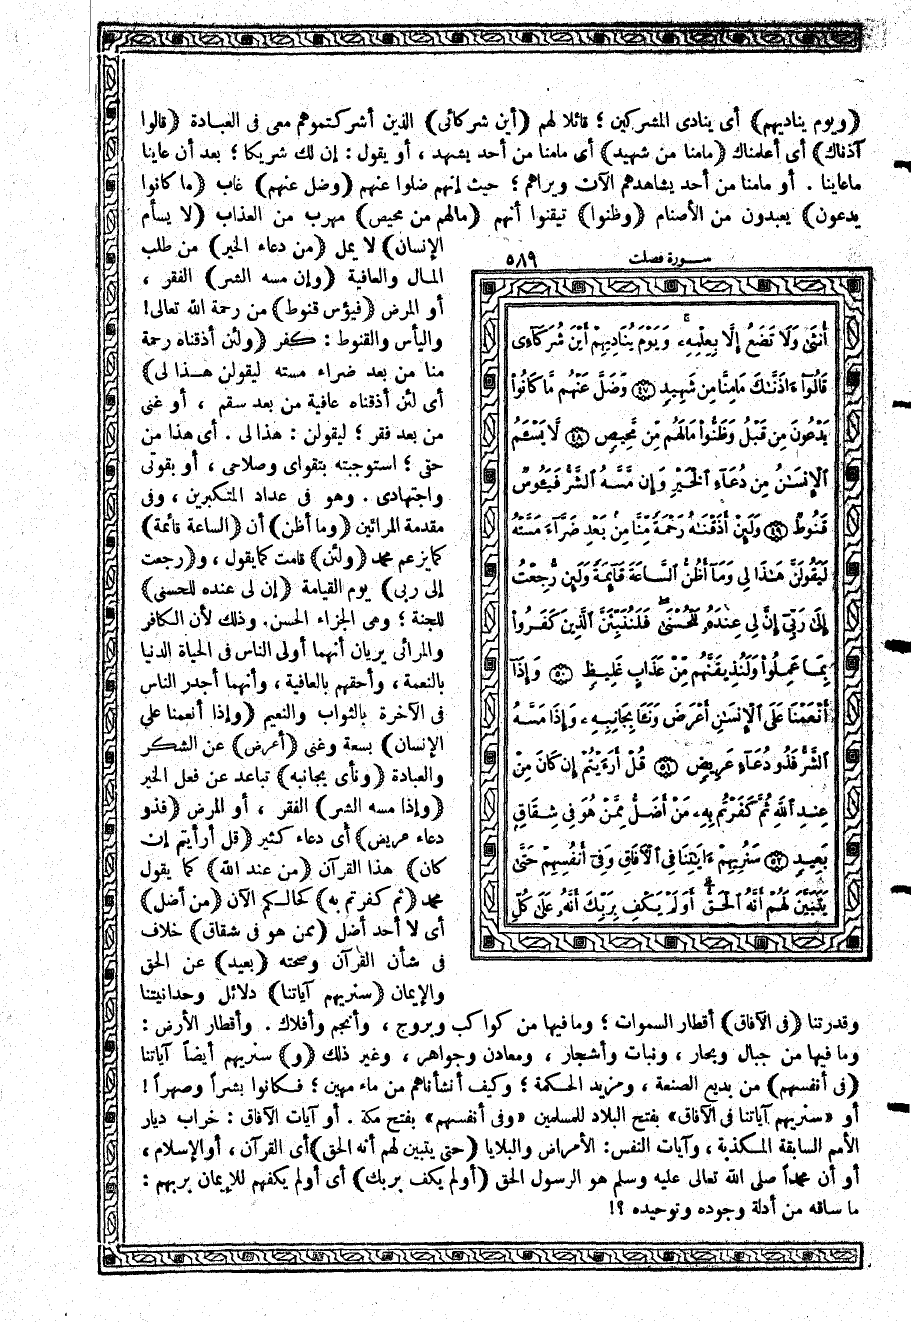 (ويوم يناديهم) أى ينادى المشركين ؛ قائلا لهم (أين شركائى) الذين أشركتموهم معى فى العبادة (قالوا
آذناك) أى أعلمناك (مامنا من شهيد) أى مامنا من أحد يشهد ، أو يقول : إن لك شريكا ؛ بعد أن عاينا
ماعاينا . أو مامنا من أحد يشاهدهم الآن ويراهم ؛ حيث إنهم ضلوا عنهم (وضل عنهم) غاب (ما كانوا
يدعون) يعبدون من الأصنام (وظنوا) تيقنوا أنهم (مالهم من محيص) مهرب من العذاب (لا يسأم
الإنسان) لا يمل (من دعاء الخير) من طلب
المال والعافية (وإن مسه الشر) الفقر ،
أو المرض (فيؤس قنوط) من رحمة الله تعالى!
واليأس والقنوط : كفر (ولئن أذقناه رحمة
منا من بعد ضراء مسته ليقولن هـذا لى)
أى لئن أذقناه عافية من بعد سقم ، أو غنى
من بعد فقر ؛ ليقولن : هذا لى . أى هذا من
حقى ؛ استوجبته بتقواى وصلاحى ، أو بقوتى
واجتهادى . وهو فى عداد المتكبرين ، وفى
مقدمة المرائين (وما أظن) أن (الساعة قائمة)
كما يزعم محمد (ولئن) قامت كما يقول ، و(رجعت
إلى ربى) يوم القيامة (إن لى عنده للحسنى)
للجنة ؛ وهى الجزاء الحسن. وذلك لأن الكافر
والمرائى يريان أنهما أولى الناس فى الحياة الدنيا
بالنعمة ، وأحقهم بالعافية ، وأنهما أجدر الناس
فى الآخرة بالثواب والنعيم (وإذا أنعمنا على
الإنسان) بسعة وغنى (أعرض) عن الشكر
والعبادة (ونأى بجانبه) تباعد عن فعل الخير
(وإذا مسه الشر) الفقر ، أو المرض (فذو
دعاء عريض) أى دعاء كثير (قل أرأيتم إن
كان) هذا القرآن (من عند الله) كما يقول
محمد (ثم كفرتم به) كحالـكم الآن (من أضل)
أى لا أحد أضل (ممن هو فى شقاق) خلاف
فى شأن القرآن وصحته (بعيد) عن الحق
والإيمان (سنريهم آياتنا) دلائل وحدانيتنا
سـورة فصلت ٥٨٩
أُنثَىٰ وَلَا تَضَعُ إِلَّا بِعِلْمِهِۦ وَيَوْمَ يُنَادِيهِمْ أَيْنَ شُرَكَآءِى
قَالُوٓا۟ ءَاذَنَّٰكَ مَامِنَّا مِن شَهِيدٍ ﴿٤٧﴾ وَضَلَّ عَنْهُم مَّا كَانُوا۟
يَدْعُونَ مِن قَبْلُ وَظَنُّوا۟ مَالَهُم مِّن مَّحِيصٍ ﴿٤٨﴾ لَّا يَسْـَٔمُ
ٱلْإِنسَٰنُ مِن دُعَآءِ ٱلْخَيْرِ وَإِن مَّسَّهُ ٱلشَّرُّ فَيَـُٔوسٌ
قَنُوطٌ ﴿٤٩﴾ وَلَئِنْ أَذَقْنَٰهُ رَحْمَةً مِّنَّا مِنۢ بَعْدِ ضَرَّآءَ مَسَّتْهُ
لَيَقُولَنَّ هَٰذَا لِى وَمَآ أَظُنُّ ٱلسَّاعَةَ قَآئِمَةً وَلَئِن رُّجِعْتُ
إِلَىٰ رَبِّىٓ إِنَّ لِى عِندَهُۥ لَلْحُسْنَىٰ فَلَنُنَبِّئَنَّ ٱلَّذِينَ كَفَرُوا۟
بِمَا عَمِلُوا۟ وَلَنُذِيقَنَّهُم مِّنْ عَذَابٍ غَلِيظٍ ﴿٥٠﴾ وَإِذَآ
أَنْعَمْنَا عَلَى ٱلْإِنسَٰنِ أَعْرَضَ وَنَـَٔا بِجَانِبِهِۦ وَإِذَا مَسَّهُ
ٱلشَّرُّ فَذُو دُعَآءٍ عَرِيضٍ ﴿٥١﴾ قُلْ أَرَءَيْتُمْ إِن كَانَ مِنْ
عِندِ ٱللَّهِ ثُمَّ كَفَرْتُم بِهِۦ مَنْ أَضَلُّ مِمَّنْ هُوَ فِى شِقَاقٍۭ
بَعِيدٍ ﴿٥٢﴾ سَنُرِيهِمْ ءَايَٰتِنَا فِى ٱلْـَٔافَاقِ وَفِىٓ أَنفُسِهِمْ حَتَّىٰ
يَتَبَيَّنَ لَهُمْ أَنَّهُ ٱلْحَقُّ أَوَلَمْ يَكْفِ بِرَبِّكَ أَنَّهُۥ عَلَىٰ كُلِّ
وقدرتنا (فى الآفاق) أقطار السموات ؛ وما فيها من كواكب وبروج ، وأنجم وأفلاك . وأقطار الأرض :
وما فيها من جبال وبحار ، ونبات وأشجار ، ومعادن وجواهر ، وغير ذلك (و) سنريهم أيضاً آياتنا
(فى أنفسهم) من بديع الصنعة ، ومزيد الحكمة ؛ وكيف أنشأناهم من ماء مهين ؛ فـكانوا بشراً وصهراً !
أو «سنريهم آياتنا فى الآفاق» بفتح البلاد للمسلمين «وفى أنفسهم» بفتح مكة . أو آيات الآفاق : خراب ديار
الأمم السابقة المـكذبة ، وآيات النفس : الأمراض والبلايا (حتى يتبين لهم أنه الحق) أى القرآن ، أو الإسلام ،
أو أن محمداً صلى الله تعالى عليه وسلم هو الرسول الحق (أولم يكف بربك) أى أولم يكفهم للإيمان بربهم :
ما ساقه من أدلة وجوده وتوحيده ؟!